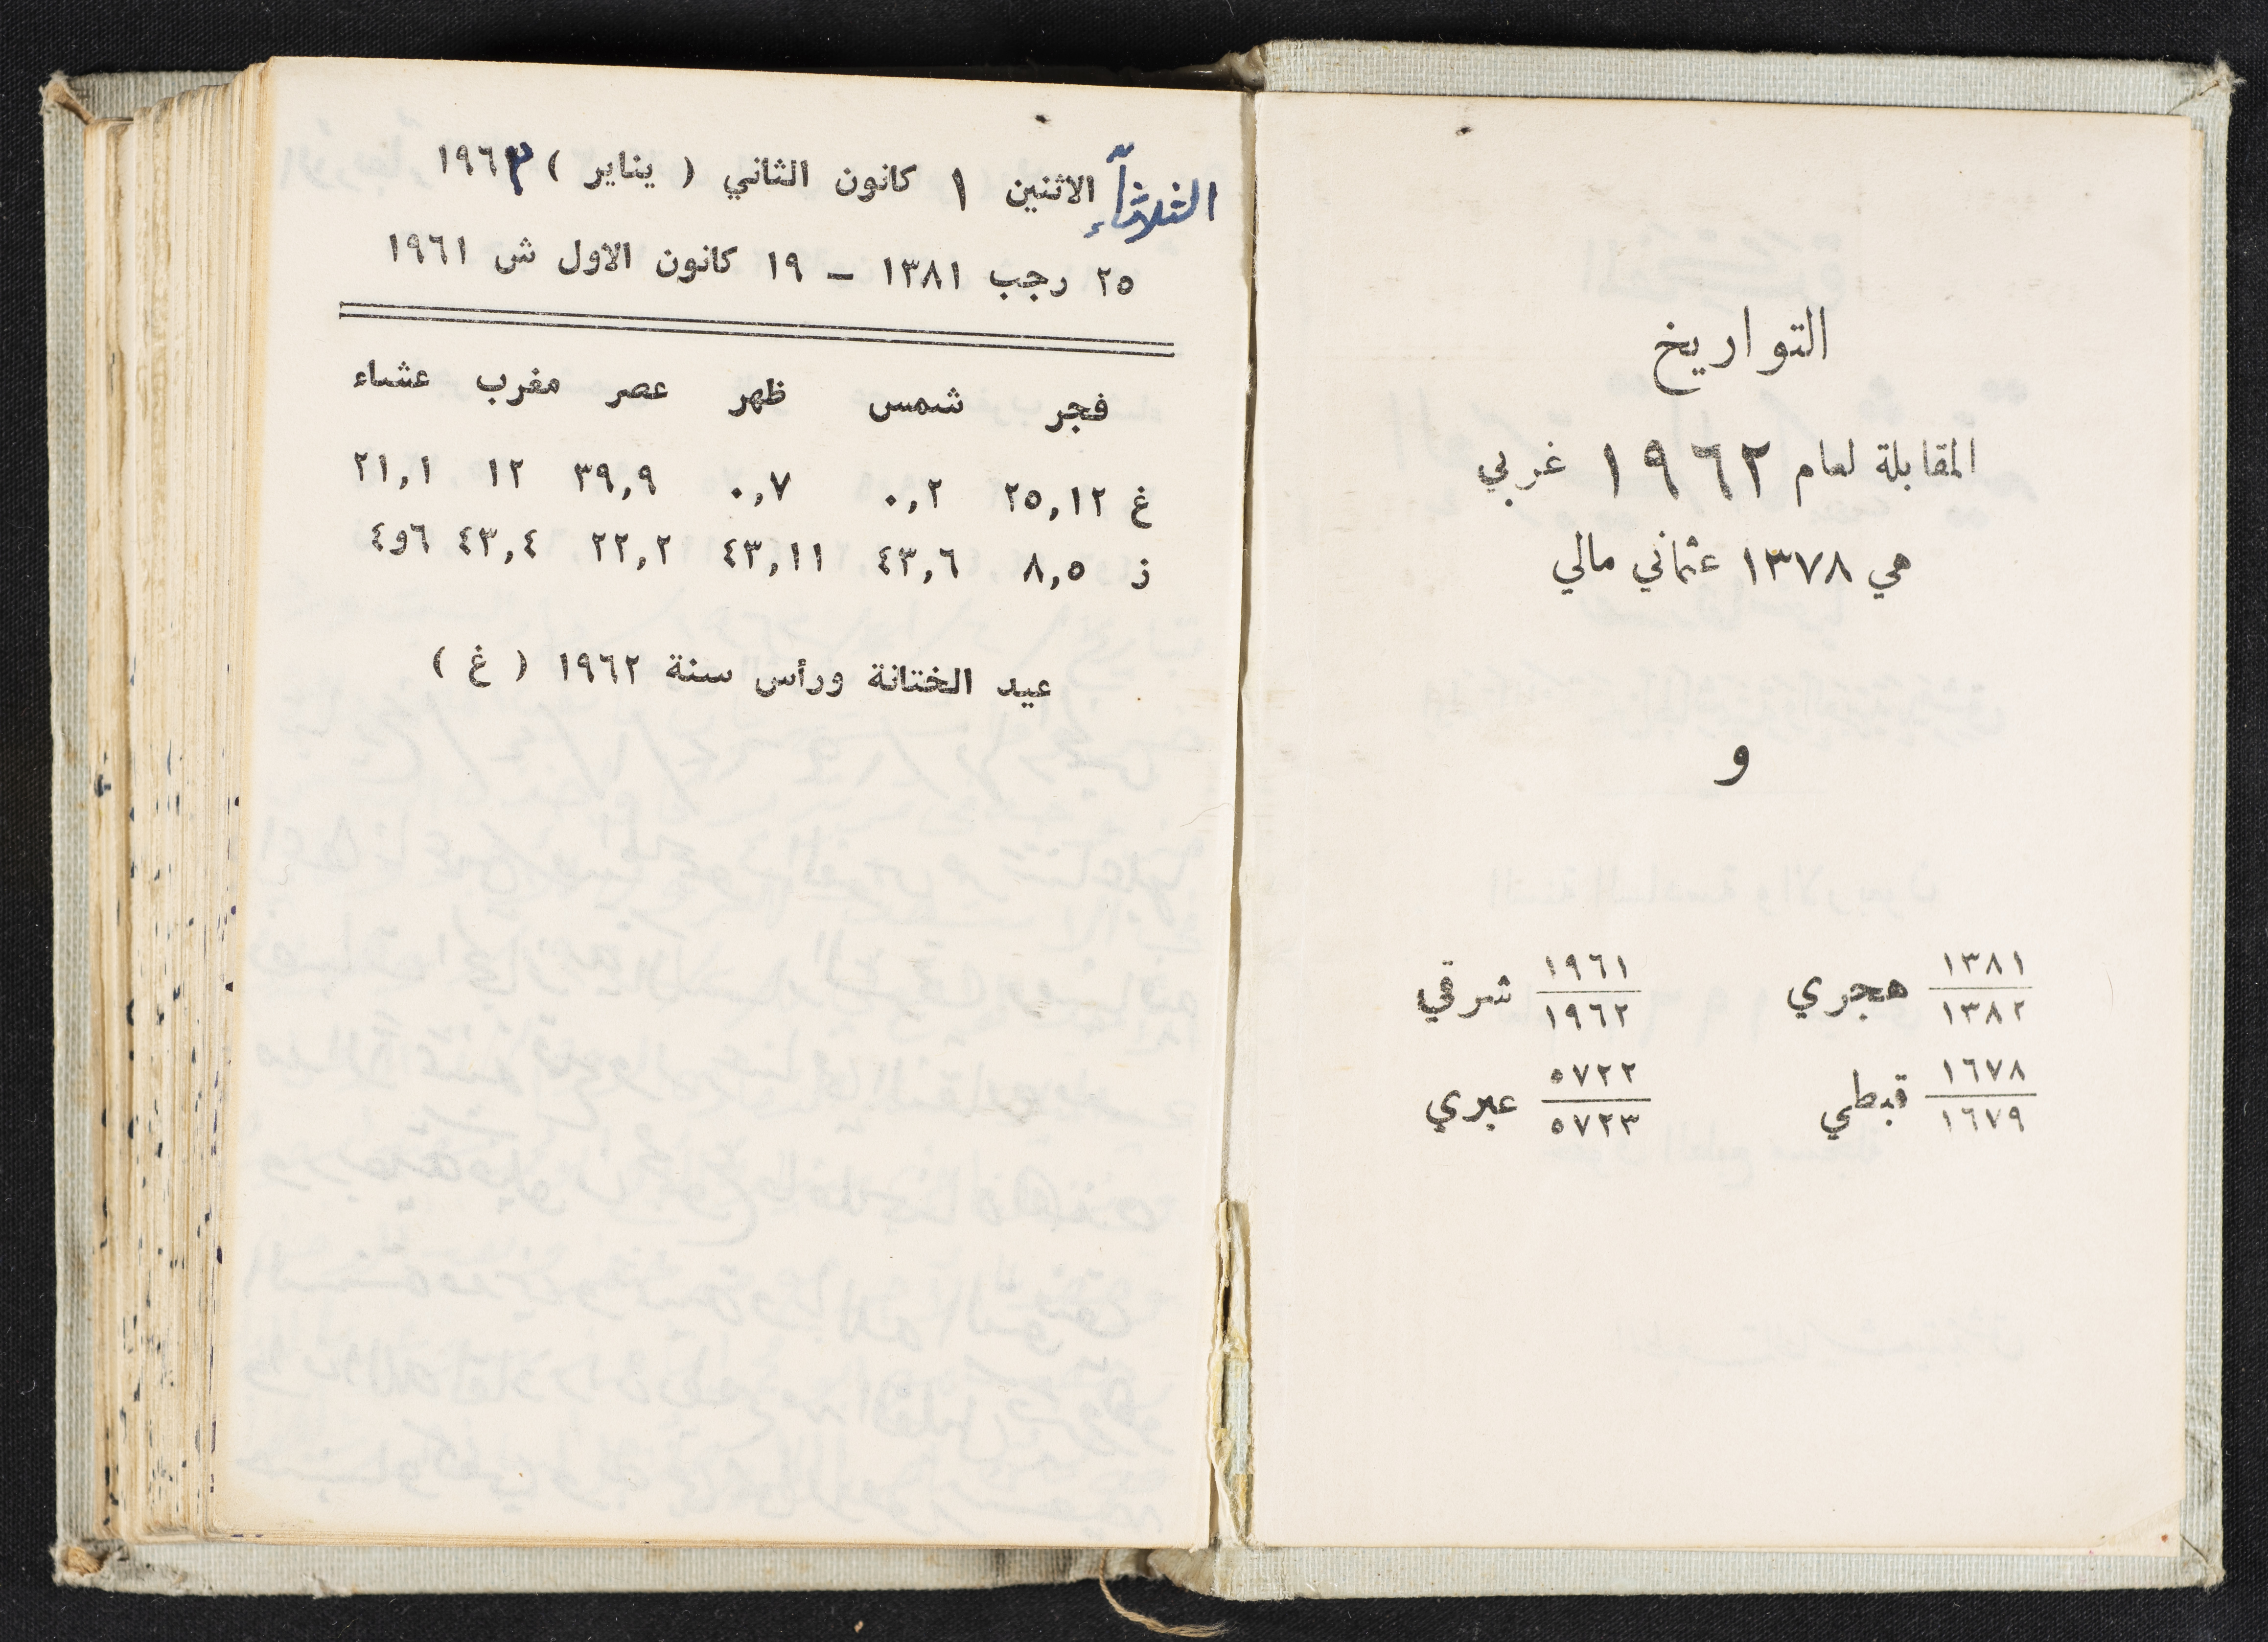 التواريخ
المقابلة لعام ١٩٦٢ غربي
هي ١٣٧٨ عثماني مالي
و
١٣٨١ / ١٣٨٢ هجري ١٩٦١ / ١٩٦٢ شرقي
١٦٧٨ / ١٦٧٩ قبطي ٥٧٢٢ / ٥٧٢٣ عبري
الثلاثاء الاثنين ١ كانون الثاني ( يناير ) ١٩٦٣
٢٥ رجب ١٣٨١ – ١٩ كانون الاول ش ١٩٦١
فجر شمس ظهر عصر مغرب عشاء
غ ٢٥,١٢ ٠,٢ ٠,٧ ٣٩,٩ ١٢ ٢١,١
ز ٨,٥ ٤٣,٦ ٤٣,١١ ٢٢,٢ ٤٣,٤ ٤و٦
عيد الختانة ورأس سنة ١٩٦٢ ( غ )